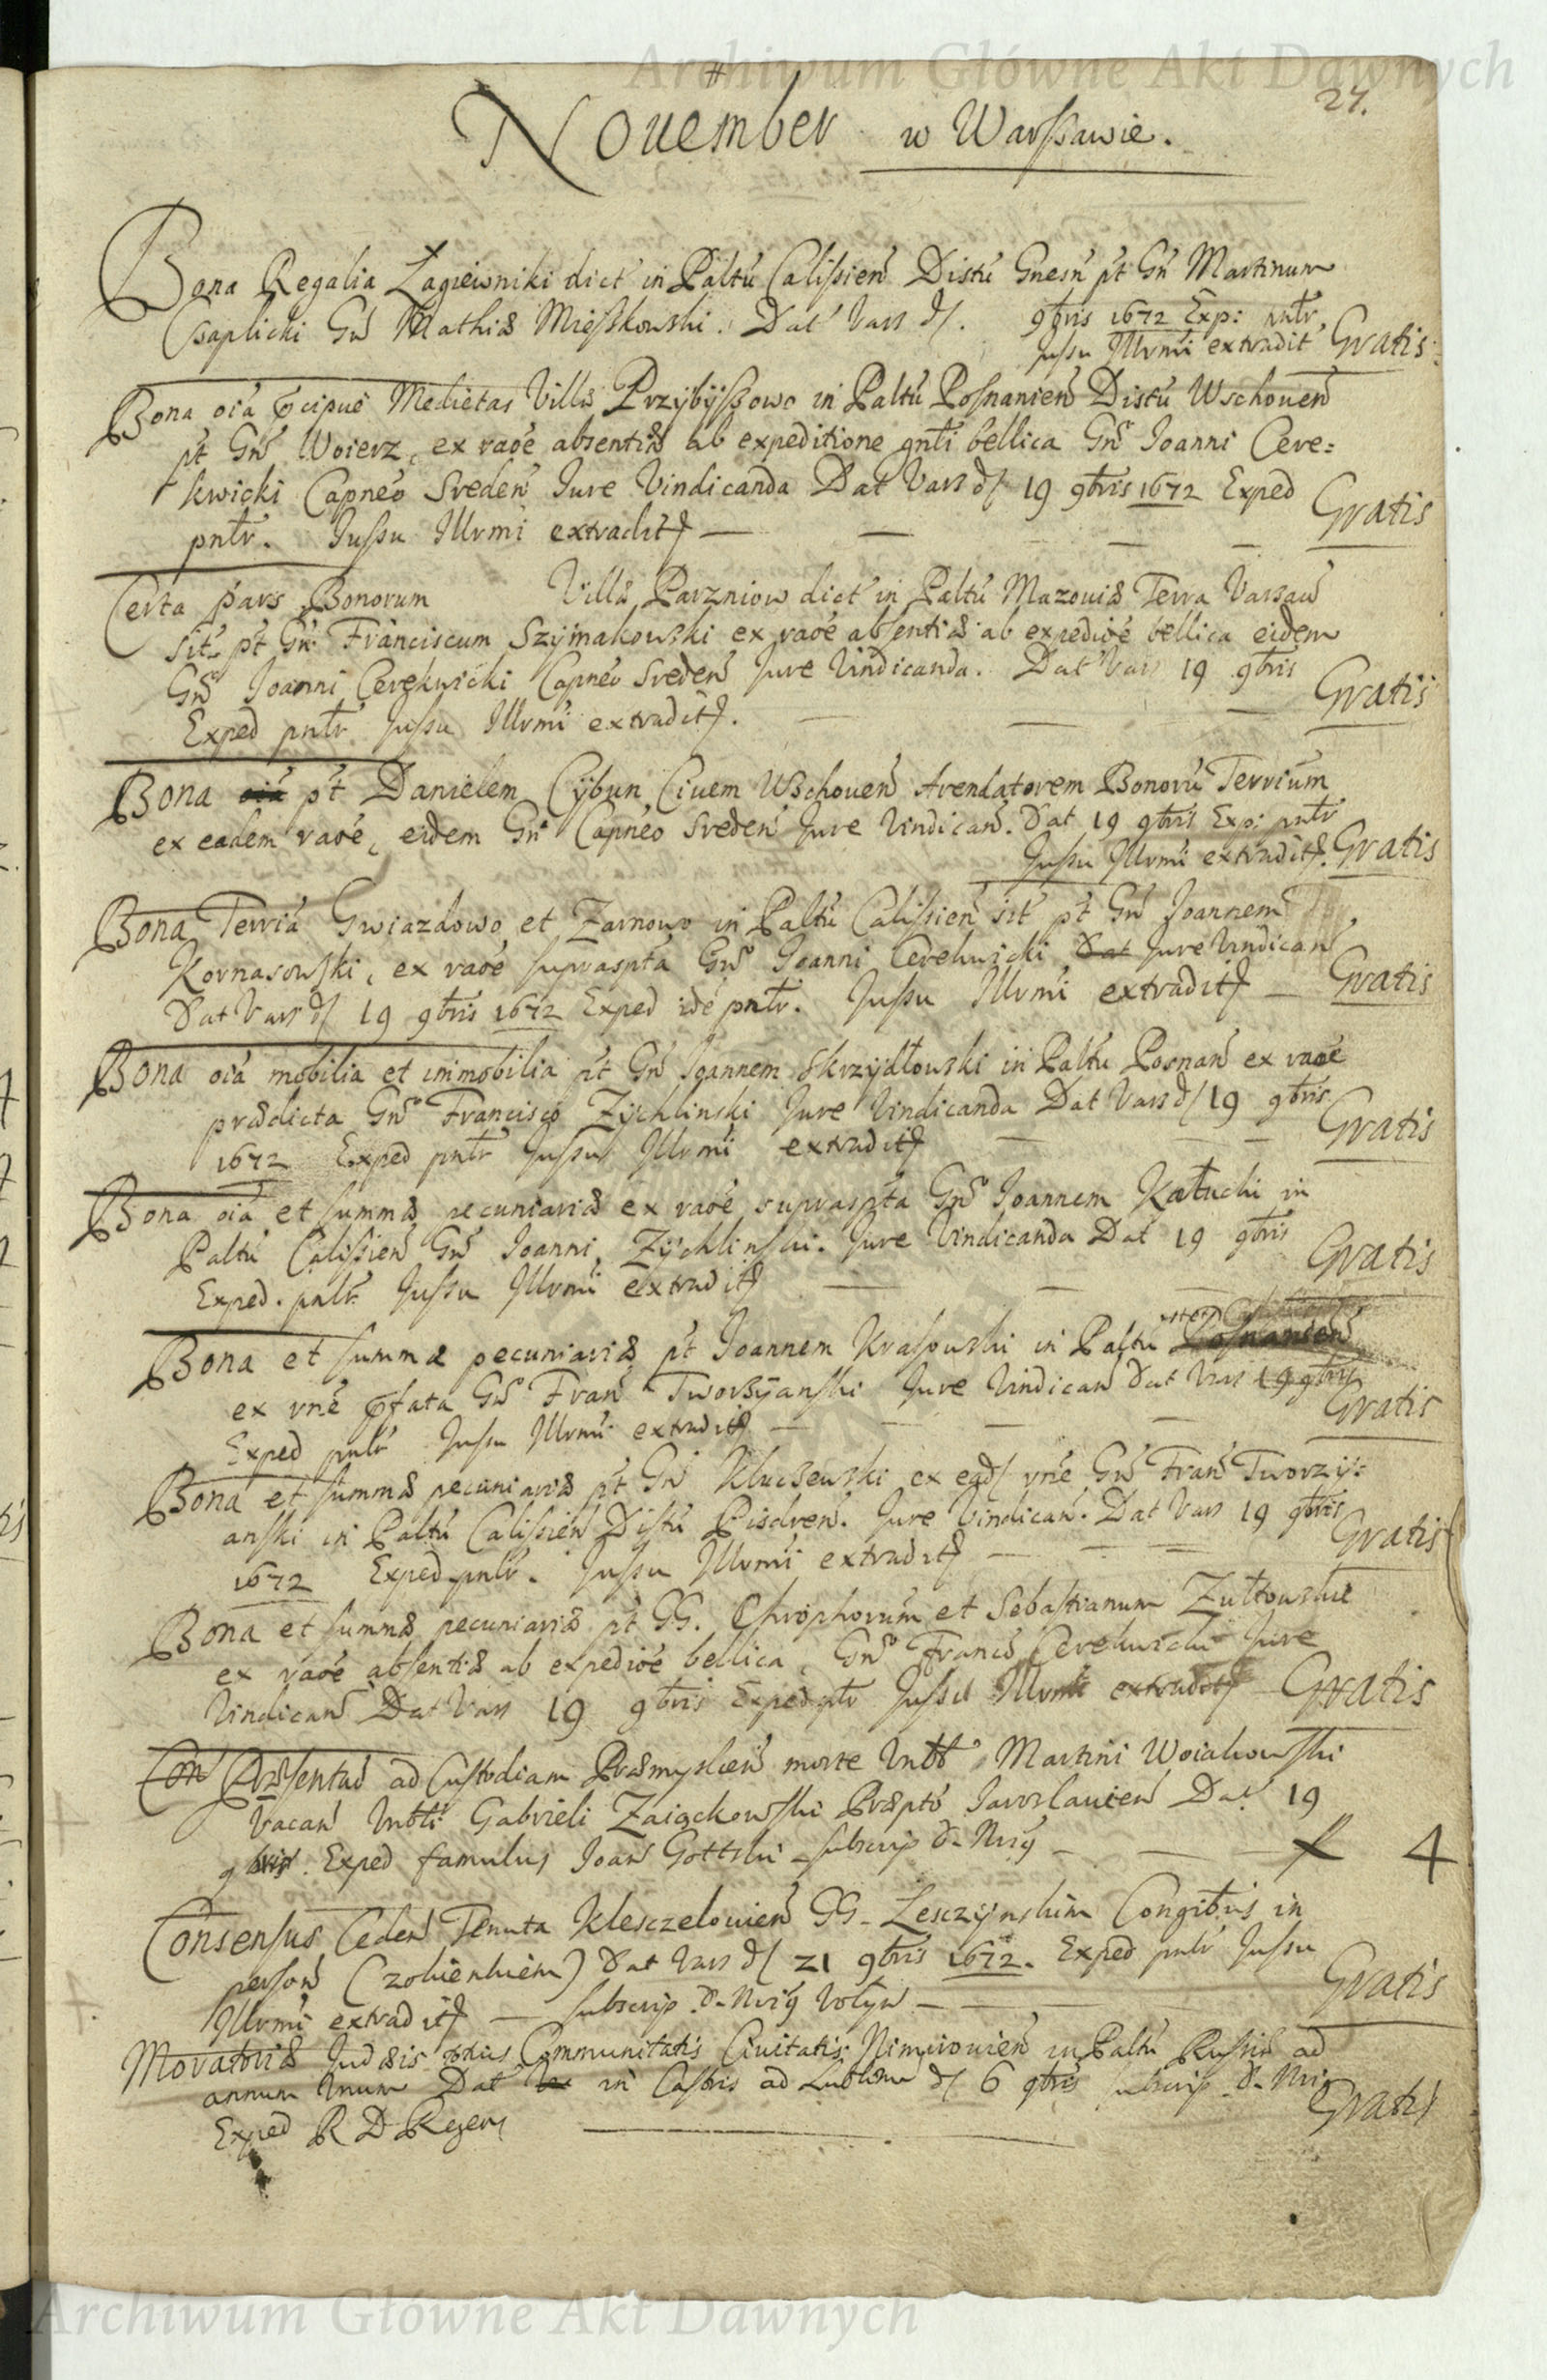 Archiwum Główne Akt Dawnych
27.
Nouember w Warszawie.
Bona Regalia Łagiewniki dict in Paltu Calissien Distu Gnesn pt Gn Martinum
Czaplicki Gn Mathiæ Mieszkowski. Dat Vars d. 9bris 1672 Exp: pntr
Jussu Illrmi extradit Gratis
Bona oia præcipue Medietas Villæ Przybyszowo in Paltu Posnanien Distu Wschouen
pt Gn Woierz, ex raoe absentiæ ab expeditione gnli bellica Gnso Ioanni Cere=
kwicki Capneo Sreden Jure Vindicanda Dat Vars d 19 9bris 1672 Exped
pntr. Jussu Illrmi extradit Gratis
Certa pars Bonorum Villæ Parzniow dict in Paltu Mazouiæ Terra Varsau
sit pt Gn Franciscum Szymakowski ex raoe absentiæ ab expedioe bellica eidem
Gnso Joanni Cerekwicki Capneo Sreden Jure Vindicanda. Dat Vars 19 9bris
Exped pntr Jussu Illrmi extradit. Gratis
Bona oia pt Danielem Cybun Ciuem Wschouen Arendatorem Bonoru Terrium
ex eadem raoe, eidem Gn Capneo Sreden Jure Vindican. Dat 19 9bris Exp: pntr
Jussu Illrmi extradit. Gratis
Bona Terria Gwiazdowo et Zarnowo in Paltu Calissien sit pt Gn Joannem
Kornasowski, ex raoe suprascpta Gnso Joanni Cerekwicki Dat Jure Vindican
Dat Vars d 19 9bris 1672 Exped ide pntr. Jussu Illrmi extradit Gratis
Bona oia mobilia et immobilia pt Gn Joannem Skrzydłowski in Paltu Posnan ex raoe
prædicta Gnso Francisco Zychlinski Jure Vindicanda Dat Vars d 19 9bris
1672 Exped pntr Jussu Illrmi extradit Gratis
Bona oia et summæ pecuniariæ ex raoe suprascpta Gnso Joannem Kałucki in
Paltu Calissien Gn Joanni Zychlinski. Jure Vindicanda Dat 19 9bris
Exped. pntr Jussu Illrmi extradit Gratis
Bona et summæ pecuniariæ pt Joannem Krasowski in Paltu Posnanien
ex rne præfata Gn Fran Tworzyanski Jure Vindican Dat Vars 19 9bris
Exped pntr Jussu Illrmi extradit Gratis
Bona et summæ pecuniariæ pt Gn Kluczewski ex ead rne Gn Fran Tworzy=
anski in Paltu Calissien Distu Pisdren. Jure Vindican. Dat Vars 19 9bris
1672 Exped pntr. Jussu Illrmi extradit Gratis
Bona et summæ pecuniariæ pt GG. Chrophorum et Sebastianum Zułtowskie
ex raoe absentiæ ab expedioe bellica, Gnso Franco Cerekwicki Jure
Vindican Dat Vars 19 9bris Exped pntr Jussu Illrmi extradit Gratis
Con Præsentas ad Custodiam Præmyslien morte Martini Woiakowski
Vacan Gabrieli Zaiąckowski Præpto Jaroslauien Dat 19
9bris. Exped famulus Joan Gottski subscrip f 4
Consensus Ceden Tenuta Klesczelouien GG. Lesczynskim Congibus in
person (zokienkiem) Dat Vars d 21 9bris 1672. Exped pntr Jussu
Illrmi extradit subscrip Gratis
Moratoriæ Communitatis Ciuitatis Nimirouien in Paltu Russiæ ad
annum Vnum Dat in Castris ad Lublin d 6 9bris subscrip
Exped R D Regens Gratis
Archiwum Główne Akt Dawnych